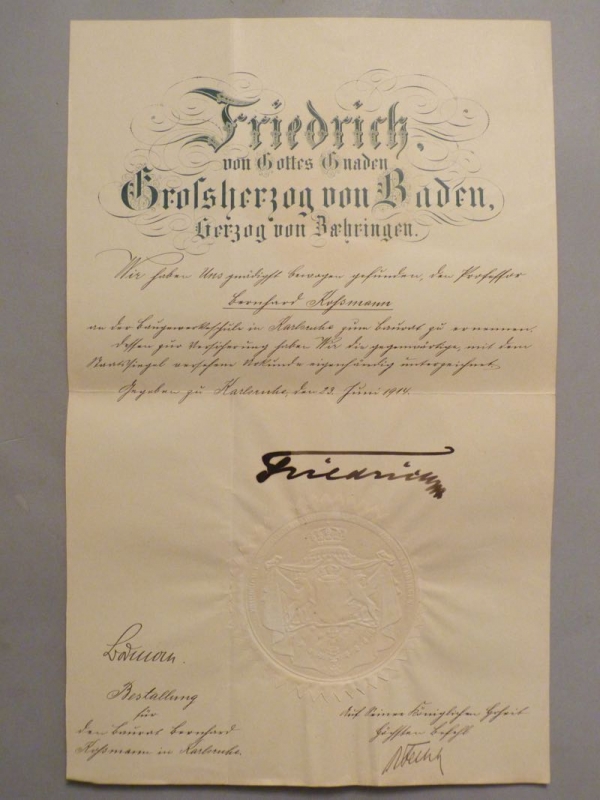 Friedrich,
von Gottes Gnaden
Grossherzog von Baden,
Herzog von Zæhringen.
Wir haben Uns gnädigst bewogen gefunden, den Professor
Bernhard Koßmann
an der Baugewerkeschule in Karlsruhe zum Baurat zu ernennen.
Dessen zur Versicherung haben Wir die gegenwärtige, mit dem
Staatssiegel versehene Urkunde eigenhändig unterzeichnet.
Gegeben zu Karlsruhe, den 23. Juni 1914.
Friedrich
Bodman.
Bestallung
für
den Baurat Bernhard
Koßmann in Karlsruhe.
Auf Seiner Königlichen Hoheit
höchsten Befehl